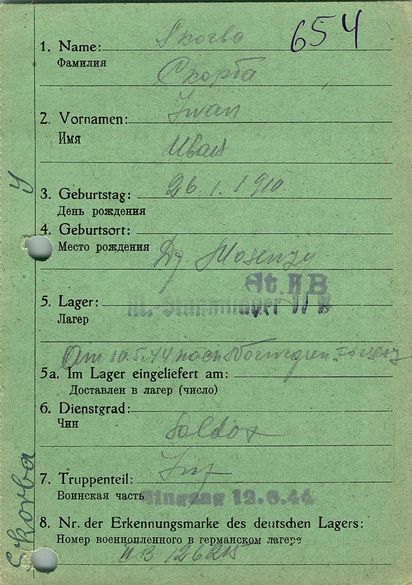 654
1. Name: Skorba
Фамилия Скорба
2. Vornamen: Iwan
Имя Иван
3. Geburtstag: 26.1.1910
День рождения
4. Geburtsort:
Место рождения
At. II B
5. Lager: M. Stammlager II B
Лагер
Am 10.5.44 nach Norwegen
5a. Im Lager eingeliefert am:
Доставлен в лагер (число)
6. Dienstgrad:
Чин Soldat
7. Truppenteil: Inf
Воинская часть Eingang 12.6.44
8. Nr. der Erkennungsmarke des deutschen Lagers:
Номер военнопленного в германском лагере
II B 126215
Skorba